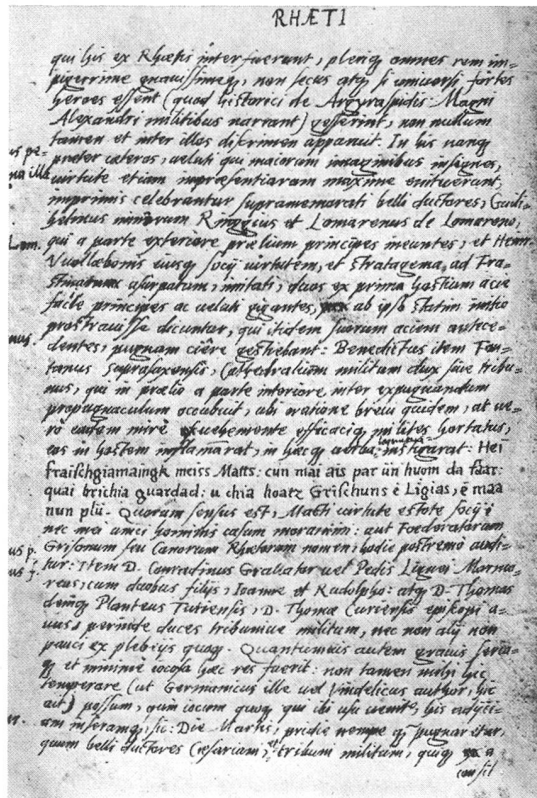 RHÆTI
qui his ex Rhætis interfuerunt, pleriq; omnes rem im-
pigerrime gnavissimeq;, non secus atq; si universi fortes
heroes essent (quod historici de Argyraspidis Magni
Alexandri militibus narrant) gesserint, non nullum
tamen et inter illos discrimen apparuit. In his nanq;
præter cæteros, veluti qui maiorum imaginibus insignes,
virtute etiam impræsentiarum maxime enituerunt,
imprimis celebrantur supramemorati belli ductores, Guili-
helmus Ringgius et Lomarenus de Lomareno,
qui a parte exteriore prælium principes ineuntes, et Henr.
eiusq; socij virtutem, et stratagema, ad Fra-
stinatium usurpatum, imitati, duos ex prima hostium acie
facile principes ac veluti gigantes, ab ipso statim initio
prostravisse dicuntur, qui itidem suorum aciem antece-
dentes, pugnam ciere gestiebant: Benedictus item Fon-
tanus Suprasaxensis, Cathedralium militum dux sive tribu-
nus, qui in prælio a parte interiore, inter expugnandum
propugnaculum occubuit, ubi oratione brevi quidem, at ve-
rò eadem mirè vehemente efficaciq; milites hortatus,
eos in hostem inflammarat, in hæcq; verba instigarat: Hei
fraischgiamaingk meiss Matts: cun mai ais par ün huom da faar:
quai brichia guardad: u chia hoatz Grischuns è Ligias, è maa
nun plü. Quorum sensus est, Macti virtute estote socij:
nec mei unici hominis casum moramini: aut Foederatorum
Grisonum seu Canorum Rhætorum nomen hodie postremò audi-
tur: Item D. Conradinus Graliatur vel Pedis Lignei Marmo-
reus, cum duobus filijs, Joanne et Rudolpho: atq; D. Thomas
deniq; Planteus Turriensis, D. Thomæ Curiensis episcopi a-
vus perinde duces tribunive militum, nec non alij non
pauci ex plebeijs quoq;. Quantumvis autem gravis seria-
q; et minimè iocosa hæc res fuerit: non tamen mihi hic
temperare (ut Germanicus ille vel Vindelicus author, hic
aut) possum, quin iocum quoq; qui ibi usu venit, his adijci-
am inseramq;, sic: Die Martis, pridie nempe q; pugnaretur,
quum belli ductores Cæsariani, et tribuni militum, quiq; a
consil
us pe-
na illa
Lom.
nus.
us p.
us f.